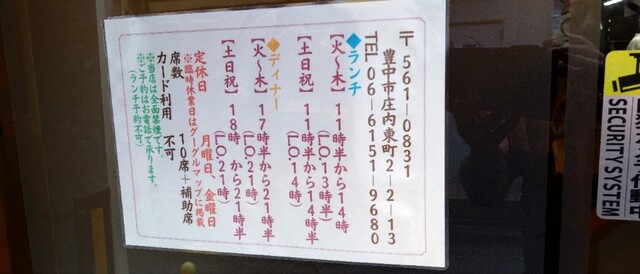 〒561-0831
豊中市庄内東町2-2-13
TEL 06-6151-9680
◆ランチ
【火〜木】11時半から14時
(L.O.13時半)
【土日祝】11時半から14時半
(L.O.14時)
◆ディナー
【火〜木】17時半から21時半
(L.O.21時)
【土日祝】18時 から21時半
(L.O.21時)
定休日 月曜日、金曜日
※臨時休業日はグーグルマップに掲載
席数 10席+補助席
カード利用 不可
※当店は全面禁煙です。
※ご予約はお電話で承ります。
(ランチ予約不可)
SECURITY SYSTEM